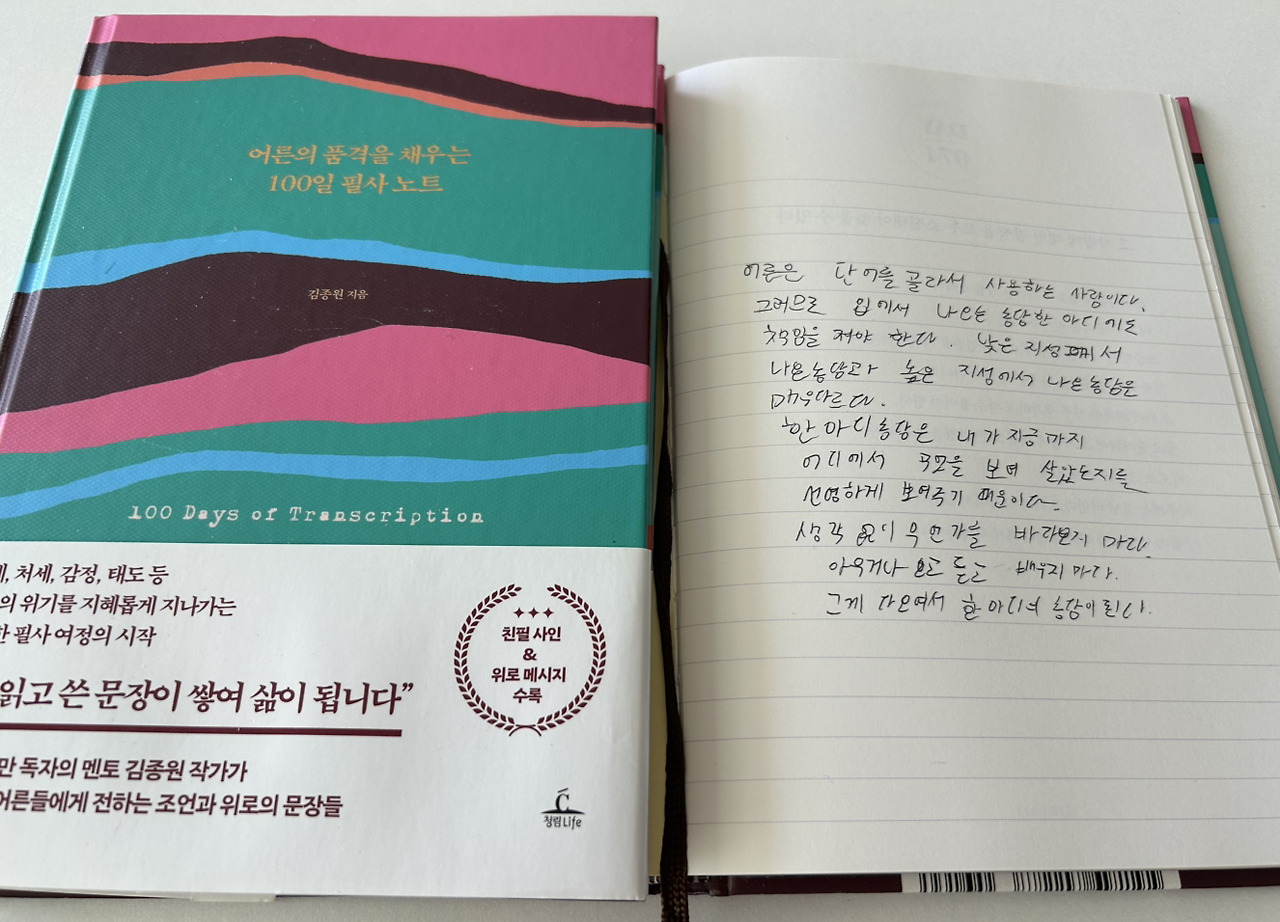 어른의 품격을 채우는
100일 필사 노트
김종원 지음
100 Days of Transcription
처세, 감정, 태도 등
의 위기를 지혜롭게 지나가는
필사 여정의 시작
읽고 쓴 문장이 쌓여 삶이 됩니다”
만 독자의 멘토 김종원 작가가
어른들에게 전하는 조언과 위로의 문장들
친필 사인
&
위로 메시지
수록
청림Life
어른은 단어를 골라서 사용하는 사람이다.
그러므로 입에서 나오는 농담 한 마디에도
책임을 져야 한다. 낮은 지성에서
나온 농담과 높은 지성에서 나온 농담은
매우 다르다.
한 마디 농담은 내가 지금까지
어디에서 무엇을 보며 살았는지를
선명하게 보여주기 때문이다.
생각 없이 무언가를 바라보지 마라.
아무거나 보고 듣고 배우지 마라.
그게 다 모여서 한 마디의 농담이 된다.